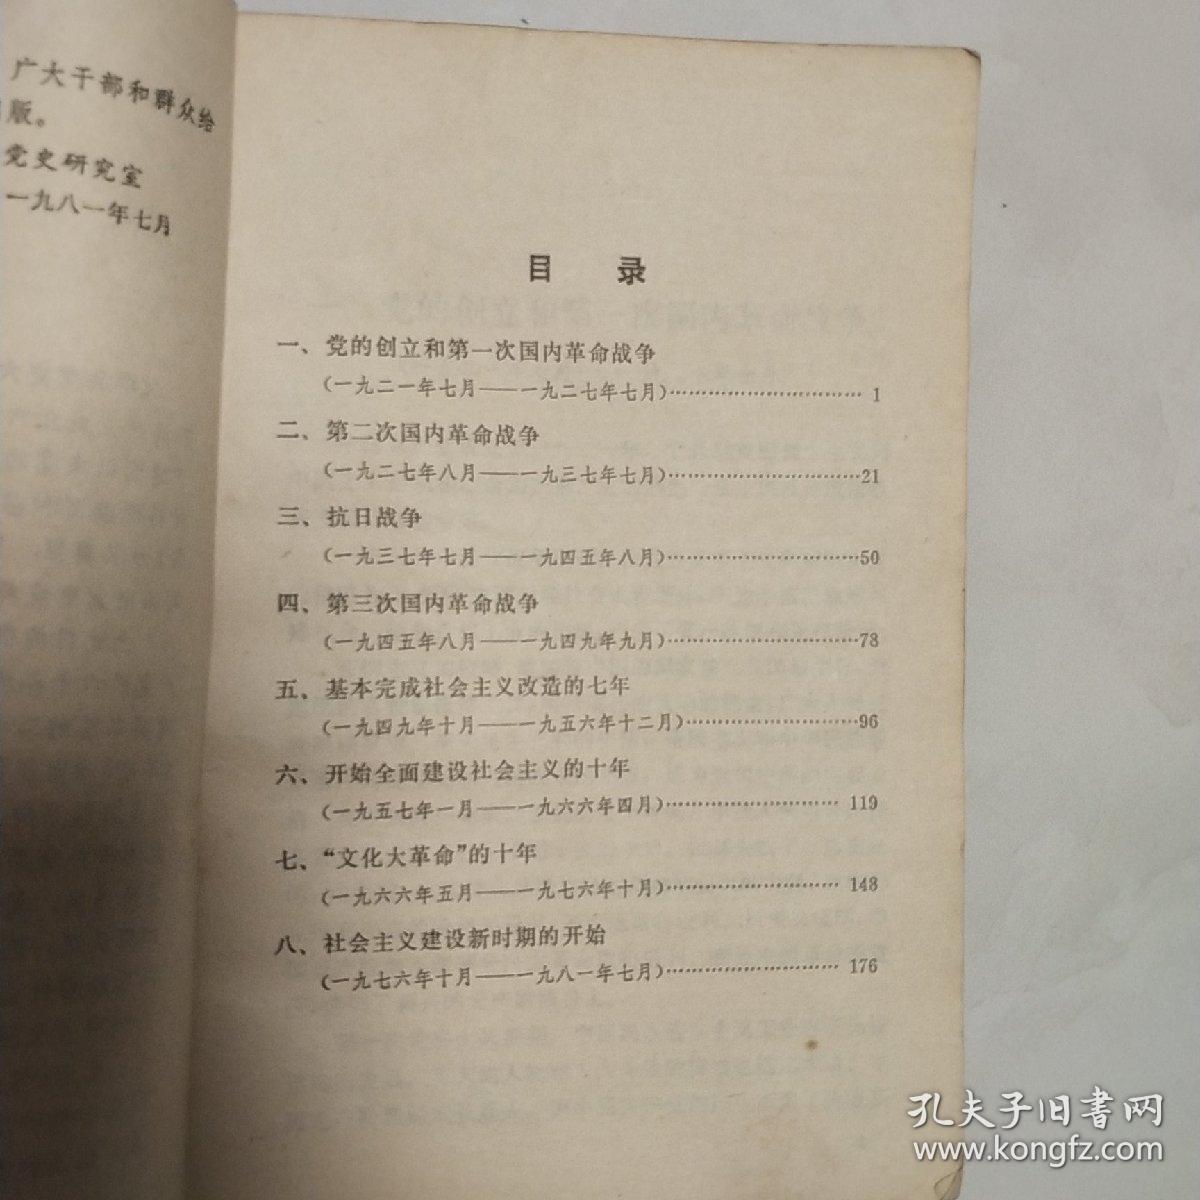 广大干部和群众给
版。
党史研究室
一九八一年七月
目 录
一、党的创立和第一次国内革命战争
(一九二一年七月——一九二七年七月)…………………………1
二、第二次国内革命战争
(一九二七年八月——一九三七年七月)…………………………21
三、抗日战争
(一九三七年七月——一九四五年八月)…………………………50
四、第三次国内革命战争
(一九四五年八月——一九四九年九月)…………………………78
五、基本完成社会主义改造的七年
(一九四九年十月——一九五六年十二月)………………………96
六、开始全面建设社会主义的十年
(一九五七年一月——一九六六年四月)………………………119
七、“文化大革命”的十年
(一九六六年五月——一九七六年十月)………………………148
八、社会主义建设新时期的开始
(一九七六年十月——一九八一年七月)………………………176
孔夫子旧书网
www.kongfz.com